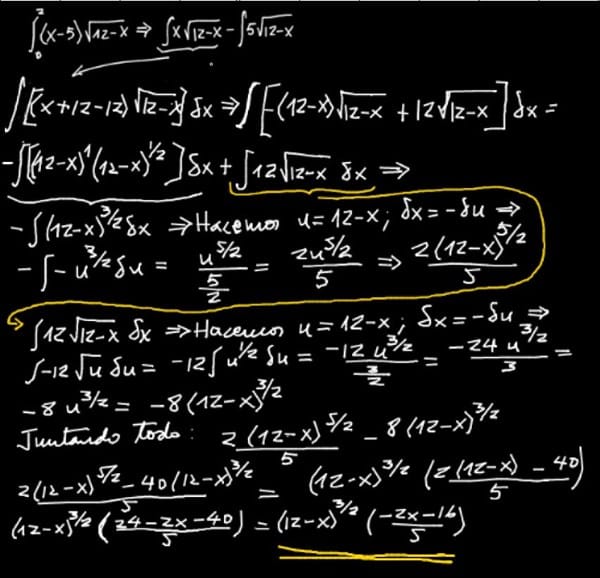 ∫₀² (x-5)√12-x ⇒ ∫x√12-x - ∫5√12-x
∫[(x+12-12)√12-x] δx ⇒ ∫[-(12-x)√12-x + 12√12-x] δx =
-∫[(12-x)¹(12-x)^1/2] δx + ∫12√12-x δx ⇒
-∫(12-x)^3/2 δx ⇒ Hacemos u = 12-x; δx = -δu ⇒
-∫-u^3/2 δu = u^5/2 / (5/2) = 2u^5/2 / 5 ⇒ 2(12-x)^5/2 / 5
∫12√12-x δx ⇒ Hacemos u = 12-x; δx = -δu ⇒
∫-12√u δu = -12∫u^1/2 δu = -12u^3/2 / (3/2) = -24u^3/2 / 3 =
-8u^3/2 = -8(12-x)^3/2
Juntando todo: 2(12-x)^5/2 / 5 - 8(12-x)^3/2
2(12-x)^5/2 - 40(12-x)^3/2 / 5 = (12-x)^3/2 (2(12-x) - 40 / 5)
(12-x)^3/2 (24-2x-40 / 5) = (12-x)^3/2 (-2x-16 / 5)